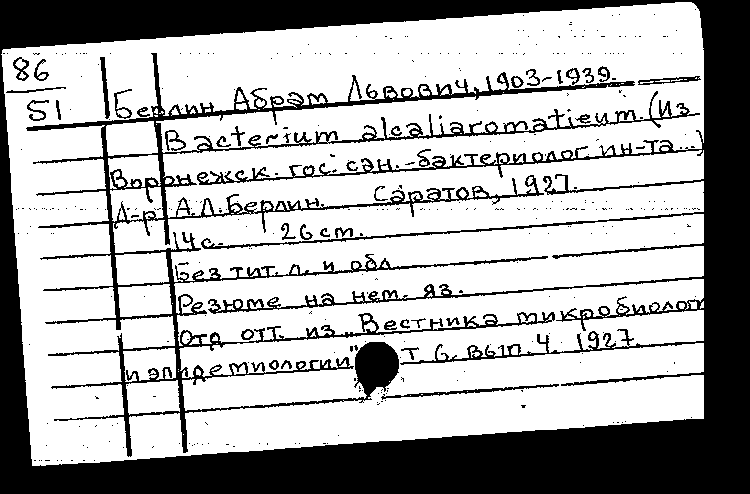 86
51
Берлин, Абрам Львович, 1903-1939.
Bacterium alcaliaromaticum. (Из
Воронежск. гос. сан.-бактериолог. ин-та...)
Д-р А.Л. Берлин. Саратов, 1927.
14 с. 26 cm.
Без тит. л. и обл
Резюме на нем. яз.
Отд отт. из „Вестника микробиолог
и эпидемиологии" Т. 6. вып. 4. 1927.